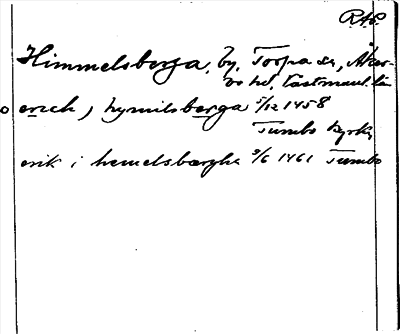 R.A.P.
Himmelsberga, by, Torpa sn, Åker-
bo hd, Västmanl. län
erich j hymilsberga 5/12 1458
Tumbo kyrka
erik i hemelsbærghe 3/6 1461 Tumbo